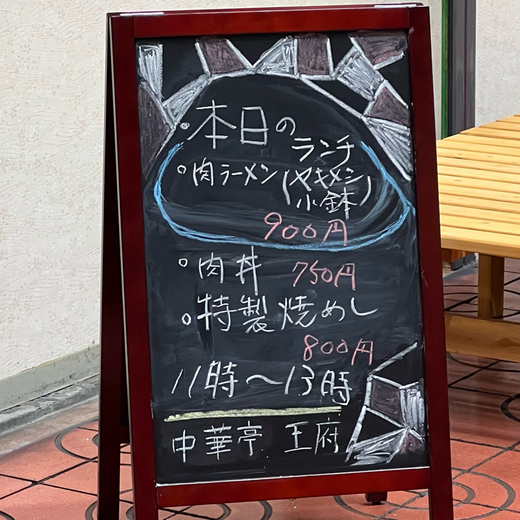 ・本日の
ランチ
・肉ラーメン(ヤキメシ
小鉢)
900円
・肉丼 750円
・特製焼めし
800円
11時〜13時
中華亭 王府